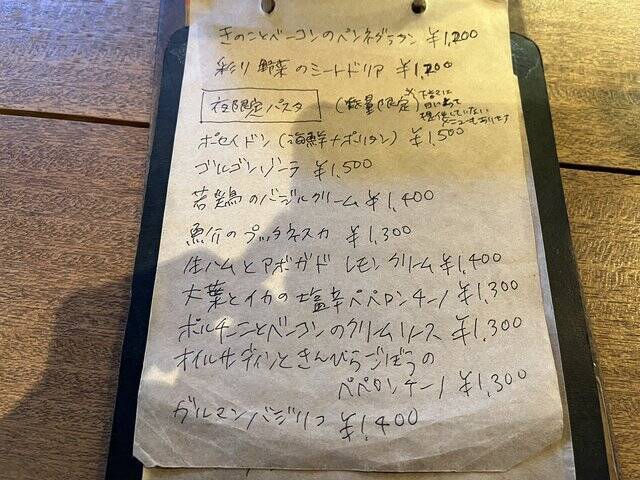 きのことベーコンのペンネグラタン ¥1,200
彩り野菜のミートドリア ¥1,200
夜限定パスタ (数量限定)
ポセイドン(海鮮ナポリタン) ¥1,500
ゴルゴンゾーラ ¥1,500
若鶏のバジルクリーム ¥1,400
魚介のプッタネスカ ¥1,300
生ハムとアボガド レモンクリーム ¥1,400
大葉とイカの塩辛ペペロンチーノ ¥1,300
ポルチーニとベーコンのクリームソース ¥1,300
オイルサーディンときんぴらごぼうの
ペペロンチーノ ¥1,300
ガルマンバジリコ ¥1,400